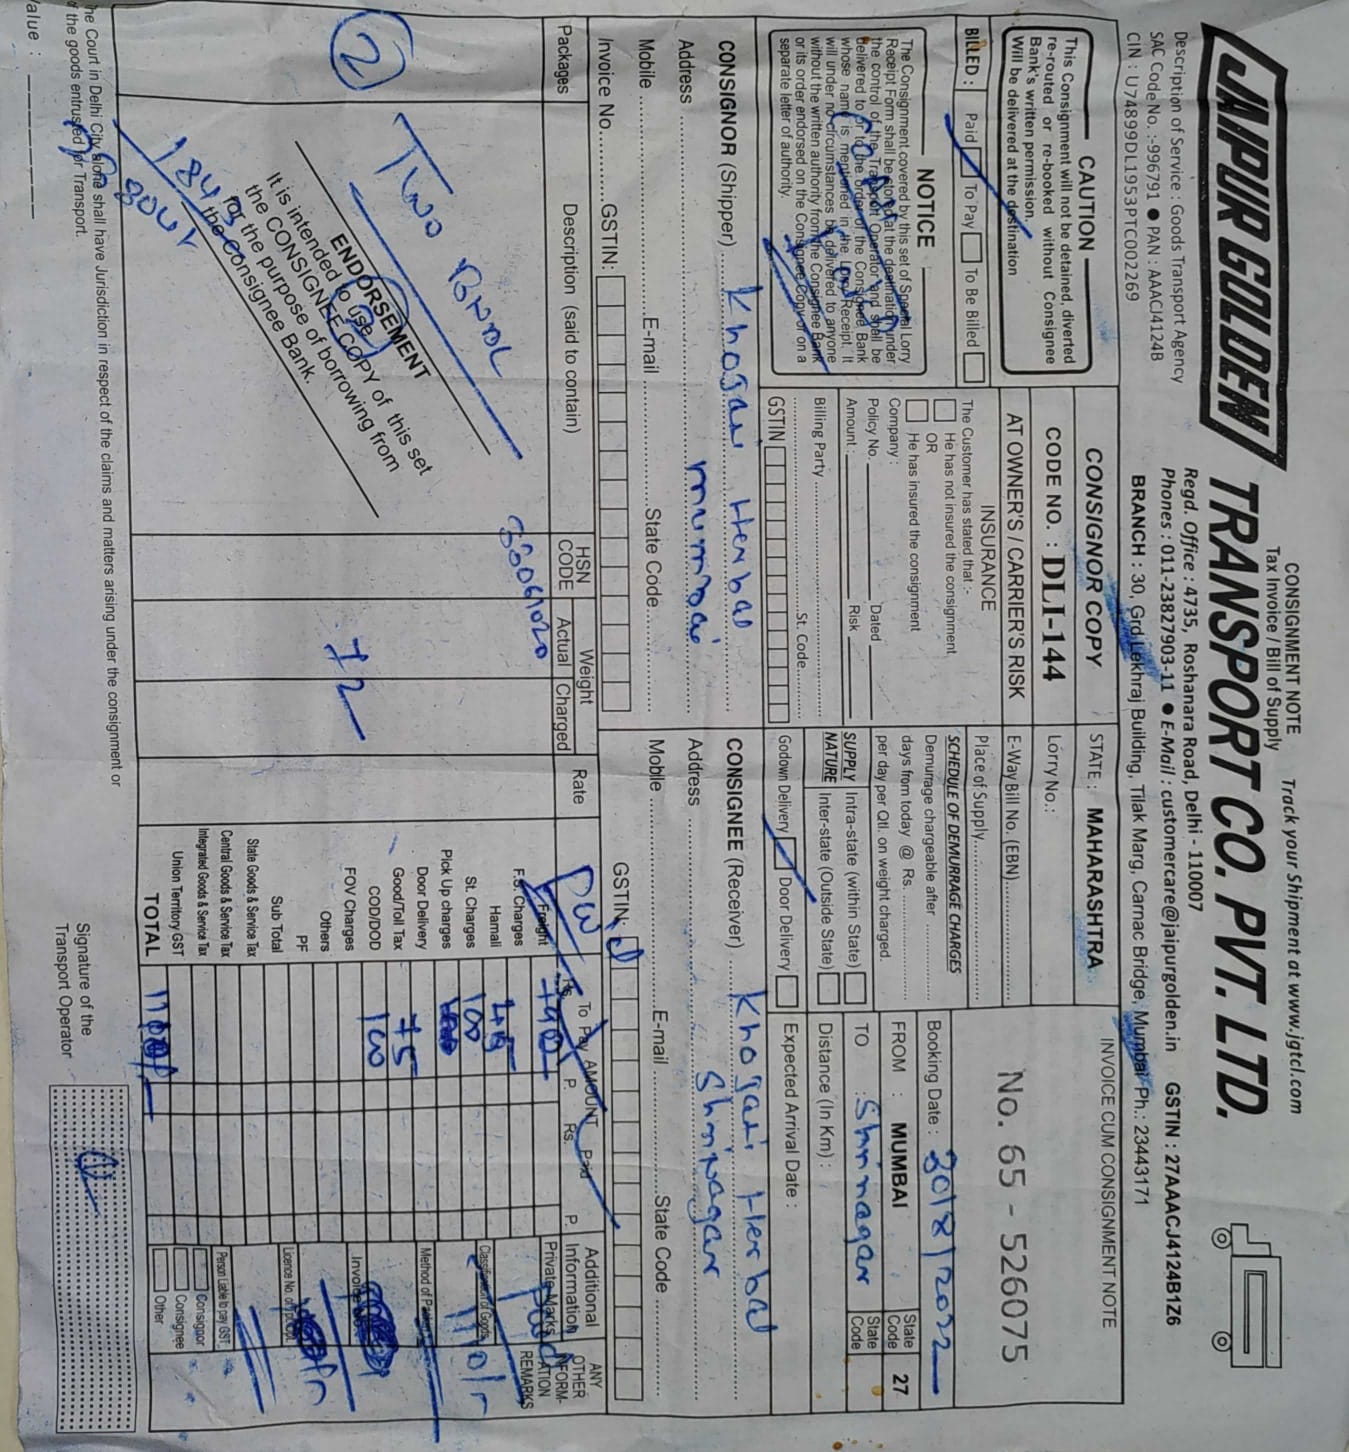 CONSIGNMENT NOTE
Tax Invoice / Bill of Supply
Track your Shipment at www.jgtcl.com
JAIPUR GOLDEN
TRANSPORT CO. PVT. LTD.
Regd. Office : 4735, Roshanara Road, Delhi - 110007
Description of Service : Goods Transport Agency
Phones : 011-23827903-11 ● E-Mail : customercare@jaipurgolden.in
GSTIN : 27AAACJ4124B1Z6
SAC Code No. :-996791 ● PAN : AAACJ4124B
CIN : U74899DL1953PTC002269
BRANCH : 30, Grd. Lekhraj Building, Tilak Marg, Carnac Bridge, Mumbai Ph.: 23443171
CAUTION
This Consignment will not be detained, diverted
re-routed or re-booked without Consignee
Bank's written permission.
Will be delivered at the destination
CONSIGNOR COPY
STATE : MAHARASHTRA
INVOICE CUM CONSIGNMENT NOTE
CODE NO. : DLI-144
Lorry No.:
No. 65 - 526075
AT OWNER'S / CARRIER'S RISK
E-Way Bill No. (EBN)
BILLED : Paid To Pay To Be Billed
INSURANCE
The Customer has stated that :-
He has not insured the consignment
OR
He has insured the consignment
Company :
Policy No. Dated
Amount : Risk
Billing Party
St. Code
GSTIN
Place of Supply
SCHEDULE OF DEMURRAGE CHARGES
Demurrage chargeable after
days from today @ Rs.
per day per Qtl. on weight charged.
SUPPLY NATURE
Intra-state (within State)
Inter-state (Outside State)
Godown Delivery Door Delivery
Booking Date : 30/8/2022
FROM : MUMBAI State Code 27
TO Shrinagar State Code
Distance (In Km) :
Expected Arrival Date :
NOTICE
The Consignment covered by this set of Special Lorry
Receipt Form shall be stored at the destination under
the control of the Transport Operator and shall be
delivered to or to the order of the Consignee Bank
whose name is mentioned in the Lorry Receipt. It
will under no circumstances be delivered to anyone
without the written authority from the Consignee Bank
or its order endorsed on the Consignee Copy or on a
separate letter of authority.
CONSIGNOR (Shipper) Khogari Herbal
Address mumbai
Mobile E-mail State Code
Invoice No. GSTIN:
CONSIGNEE (Receiver) Khogari Herbal
Address Shrinagar
Mobile E-mail State Code
GSTIN:
Packages
Description (said to contain)
HSN CODE
Weight
Actual Charged
Rate
AMOUNT
To Pay Paid
Rs. P. Rs. P.
Additional Information
ANY OTHER INFORMATION
REMARKS
Private Marks
2
TWO BNDL
72
ENDORSEMENT
It is intended to use
the CONSIGNEE COPY of this set
for the purpose of borrowing from
the Consignee Bank.
Freight
F.S. Charges
Hamali
St. Charges 100
Pick Up charges
Door Delivery
Good/Toll Tax 75
COD/DOD 100
FOV Charges
Others
PF
Sub Total
State Goods & Service Tax
Central Goods & Service Tax
Integrated Goods & Service Tax
Union Territory GST
TOTAL
Classification of Goods
Person Liable to pay GST
Consignor
Consignee
Other
he Court in Delhi City alone shall have Jurisdiction in respect of the claims and matters arising under the consignment or
f the goods entrusted for Transport.
alue :
Signature of the
Transport Operator